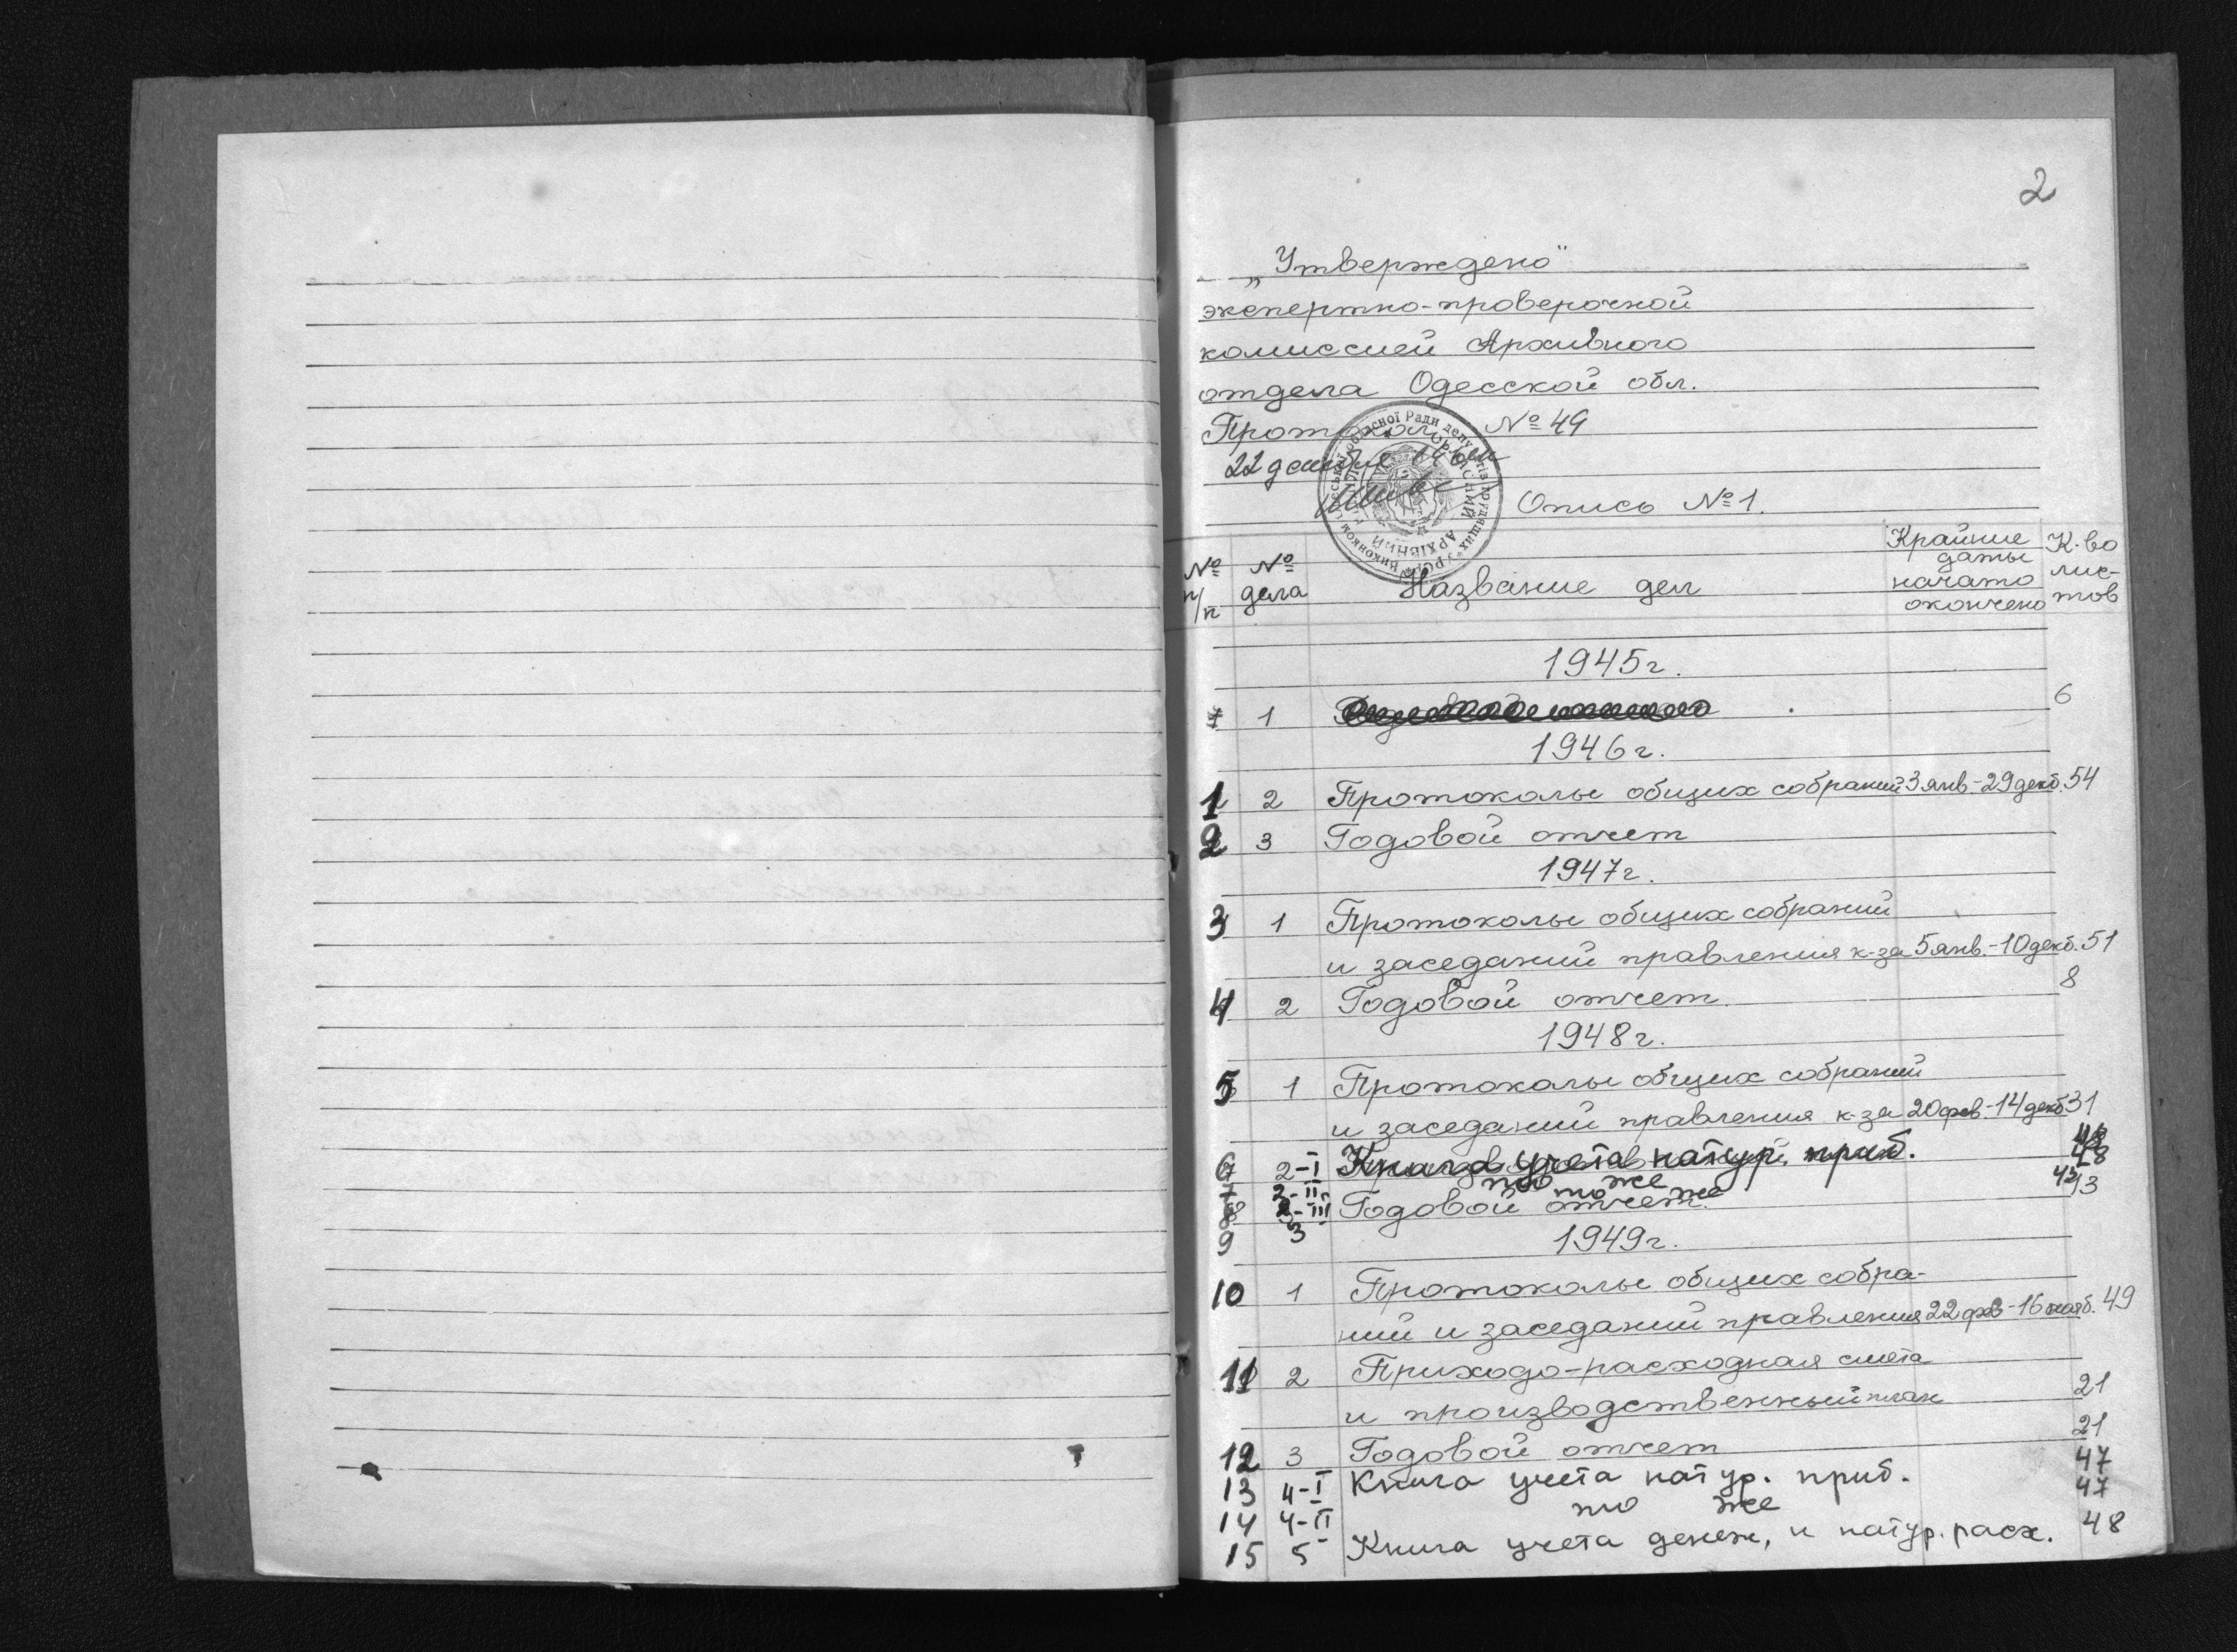 2
„Утверждено"
экспертно-проверочной
комиссией Архивного
отдела Одесской обл.
Протокол № 49
22
Опись № 1.
№ п/п № дела Название дел Крайние даты начато окончено К-во листов
1945г.
1 6
1946г.
1 2 Протоколы общих собраний 3 янв.-29 декб. 54
2 3 Годовой отчет
1947г.
3 1 Протоколы общих собраний
и заседаний правления к-за 5 янв.-10 декб. 51
4 2 Годовой отчет 8
1948г.
5 1 Протоколы общих собраний
и заседаний правления к-за 20 фев.-14 декб 31
6 2-I Книга учета натур. приб. 48
7 2-II то же 48
8 2-III то же 45
9 3 Годовой отчет 13
1949г.
10 1 Протоколы общих собра-
ний и заседаний правления 22 фев-16 нояб. 49
11 2 Приходо-расходная смета
и производственный план 21
12 3 Годовой отчет 21
13 4-I Книга учета натур. приб. 47
14 4-II то же 47
15 5 Книга учета денеж, и натур. расх. 48